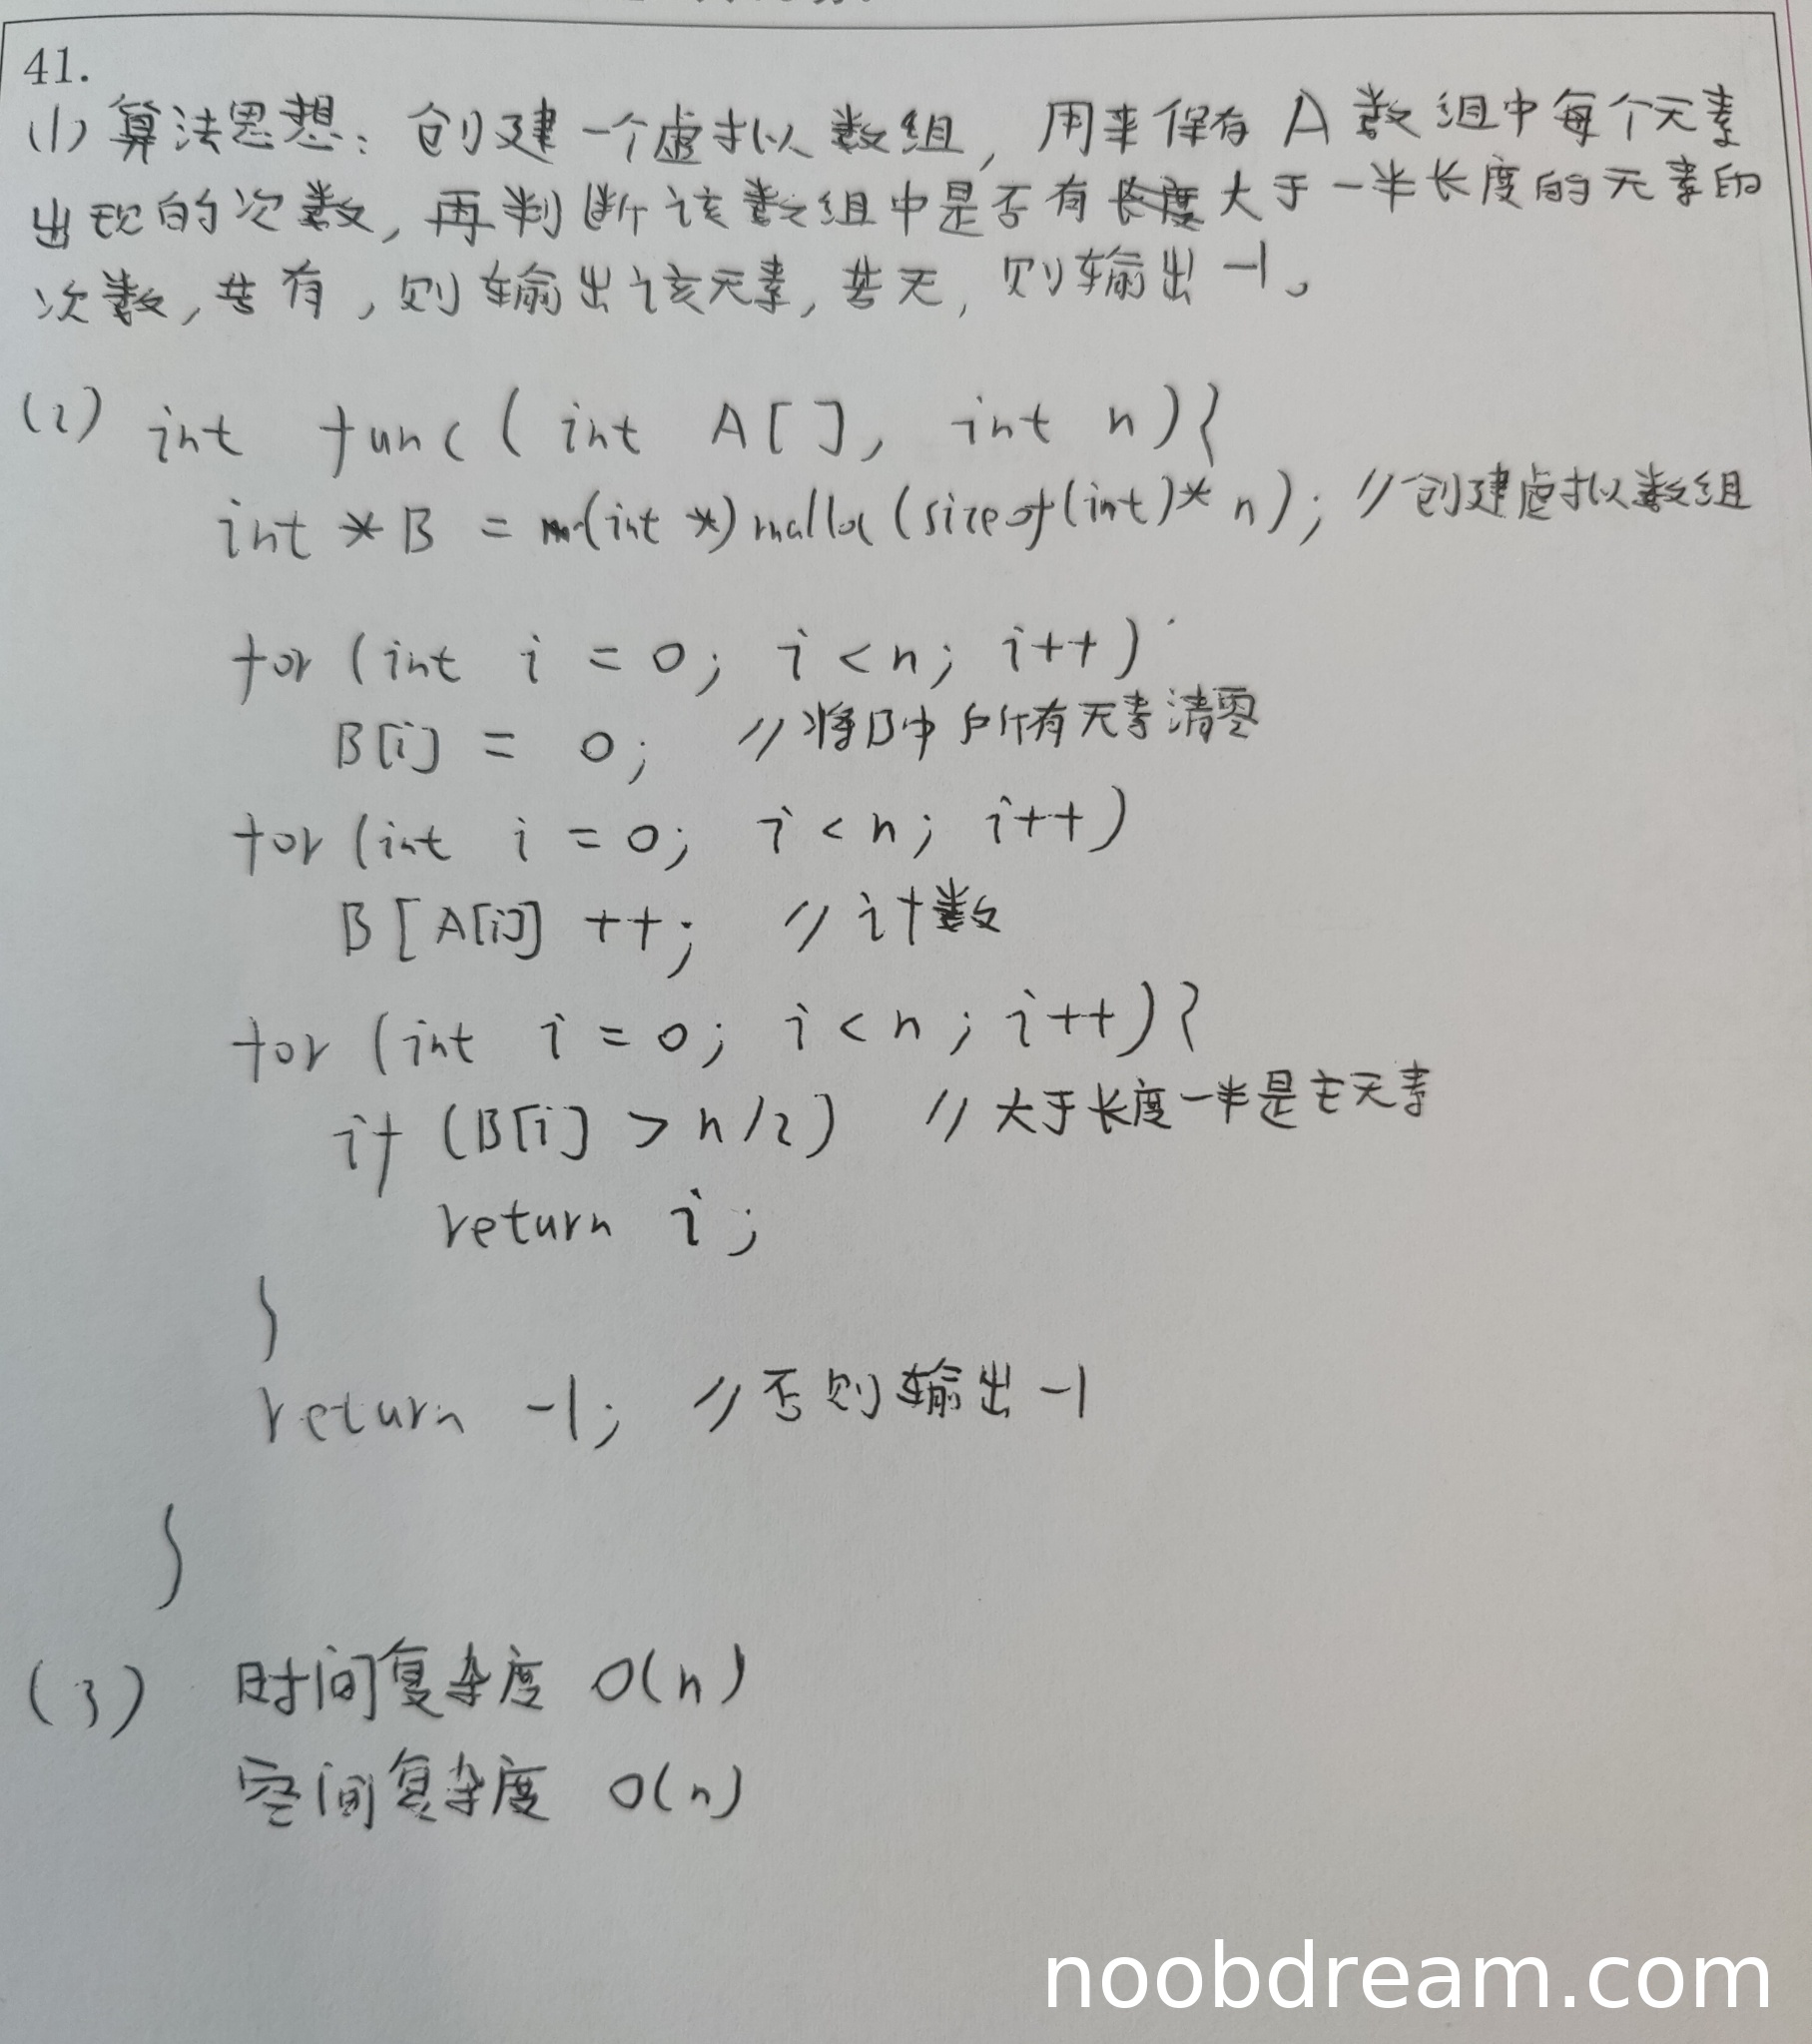 41.
(1) 算法思想: 创建一个虚拟数组, 用来保存 A 数组中每个元素
出现的次数, 再判断该数组中是否有长度大于一半长度的元素的
次数, 若有, 则输出该元素, 若无, 则输出 -1。
(2) int func( int A[], int n){
int *B = (int *)malloc(sizeof(int)* n); //创建虚拟数组
for (int i = 0; i < n; i++)
B[i] = 0; //将B中所有元素清零
for (int i = 0; i < n; i++)
B[A[i]] ++; // 计数
for (int i = 0; i < n; i++){
if (B[i] > n/2) // 大于长度一半是主元素
return i;
}
return -1; //否则输出 -1
}
(3) 时间复杂度 O(n)
空间复杂度 O(n)
noobdream.com